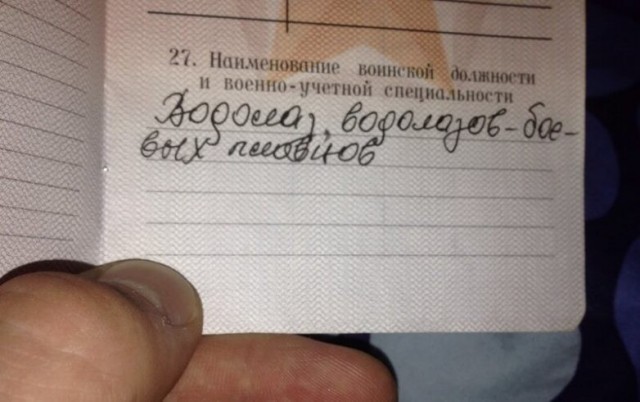 27. Наименование воинской должности
и военно-учетной специальности
Водолаз, водолазов-бое-
вых пловцов